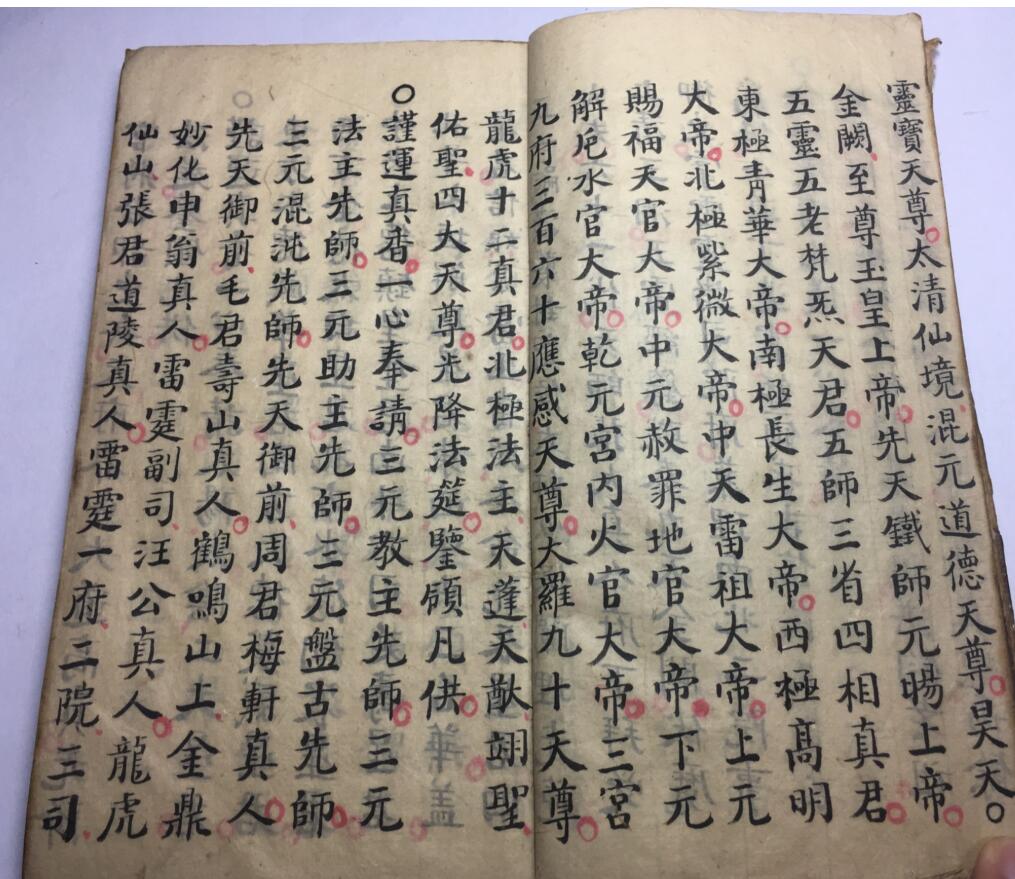 靈寶天尊太清仙境混元道德天尊昊天
金闕至尊玉皇上帝先天鐵師元暘上帝
五靈五老梵炁天君五師三省四相真君
東極青華大帝南極長生大帝西極高明
大帝北極紫微大帝中天雷祖大帝上元
賜福天官大帝中元赦罪地官大帝下元
解厄水官大帝乾元宮內火官大帝三宮
九府三百六十應感天尊大羅九十天尊
龍虎十二真君北極法主天蓬天猷翊聖
佑聖四大天尊光降法筵鑒領凡供
謹運真香一心奉請三元教主先師三元
法主先師三元助主先師三元盤古先師
三元混沌先師先天御前周君梅軒真人
先天御前毛君壽山真人鶴鳴山上金鼎
妙化申翁真人雷霆副司汪公真人龍虎
仙山張君道陵真人雷霆一府二院三司